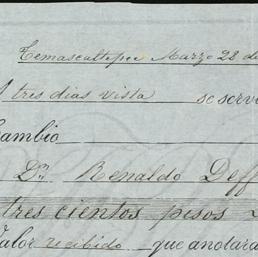 Temascaltepec Marzo 28 de
A tres dias vista se serv
Cambio
Dn Renaldo Deff
tres cientos pesos
Valor recibido que anotará